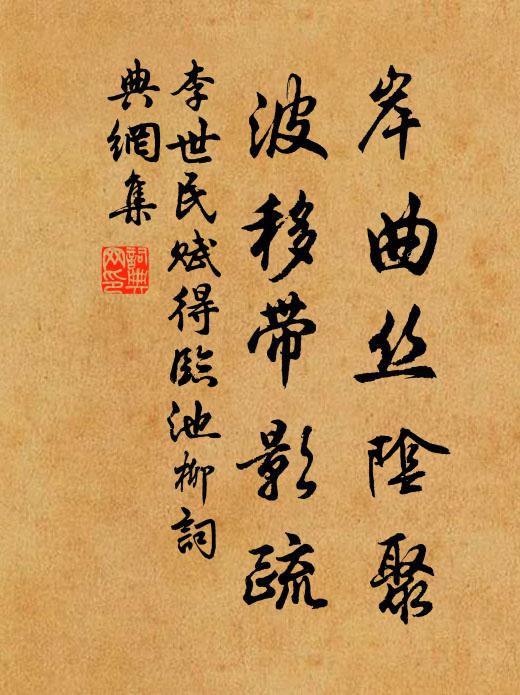 岸曲丝陰聚
波移带影疏
李世民赋得臨池柳詞
典網集
詞典
网印